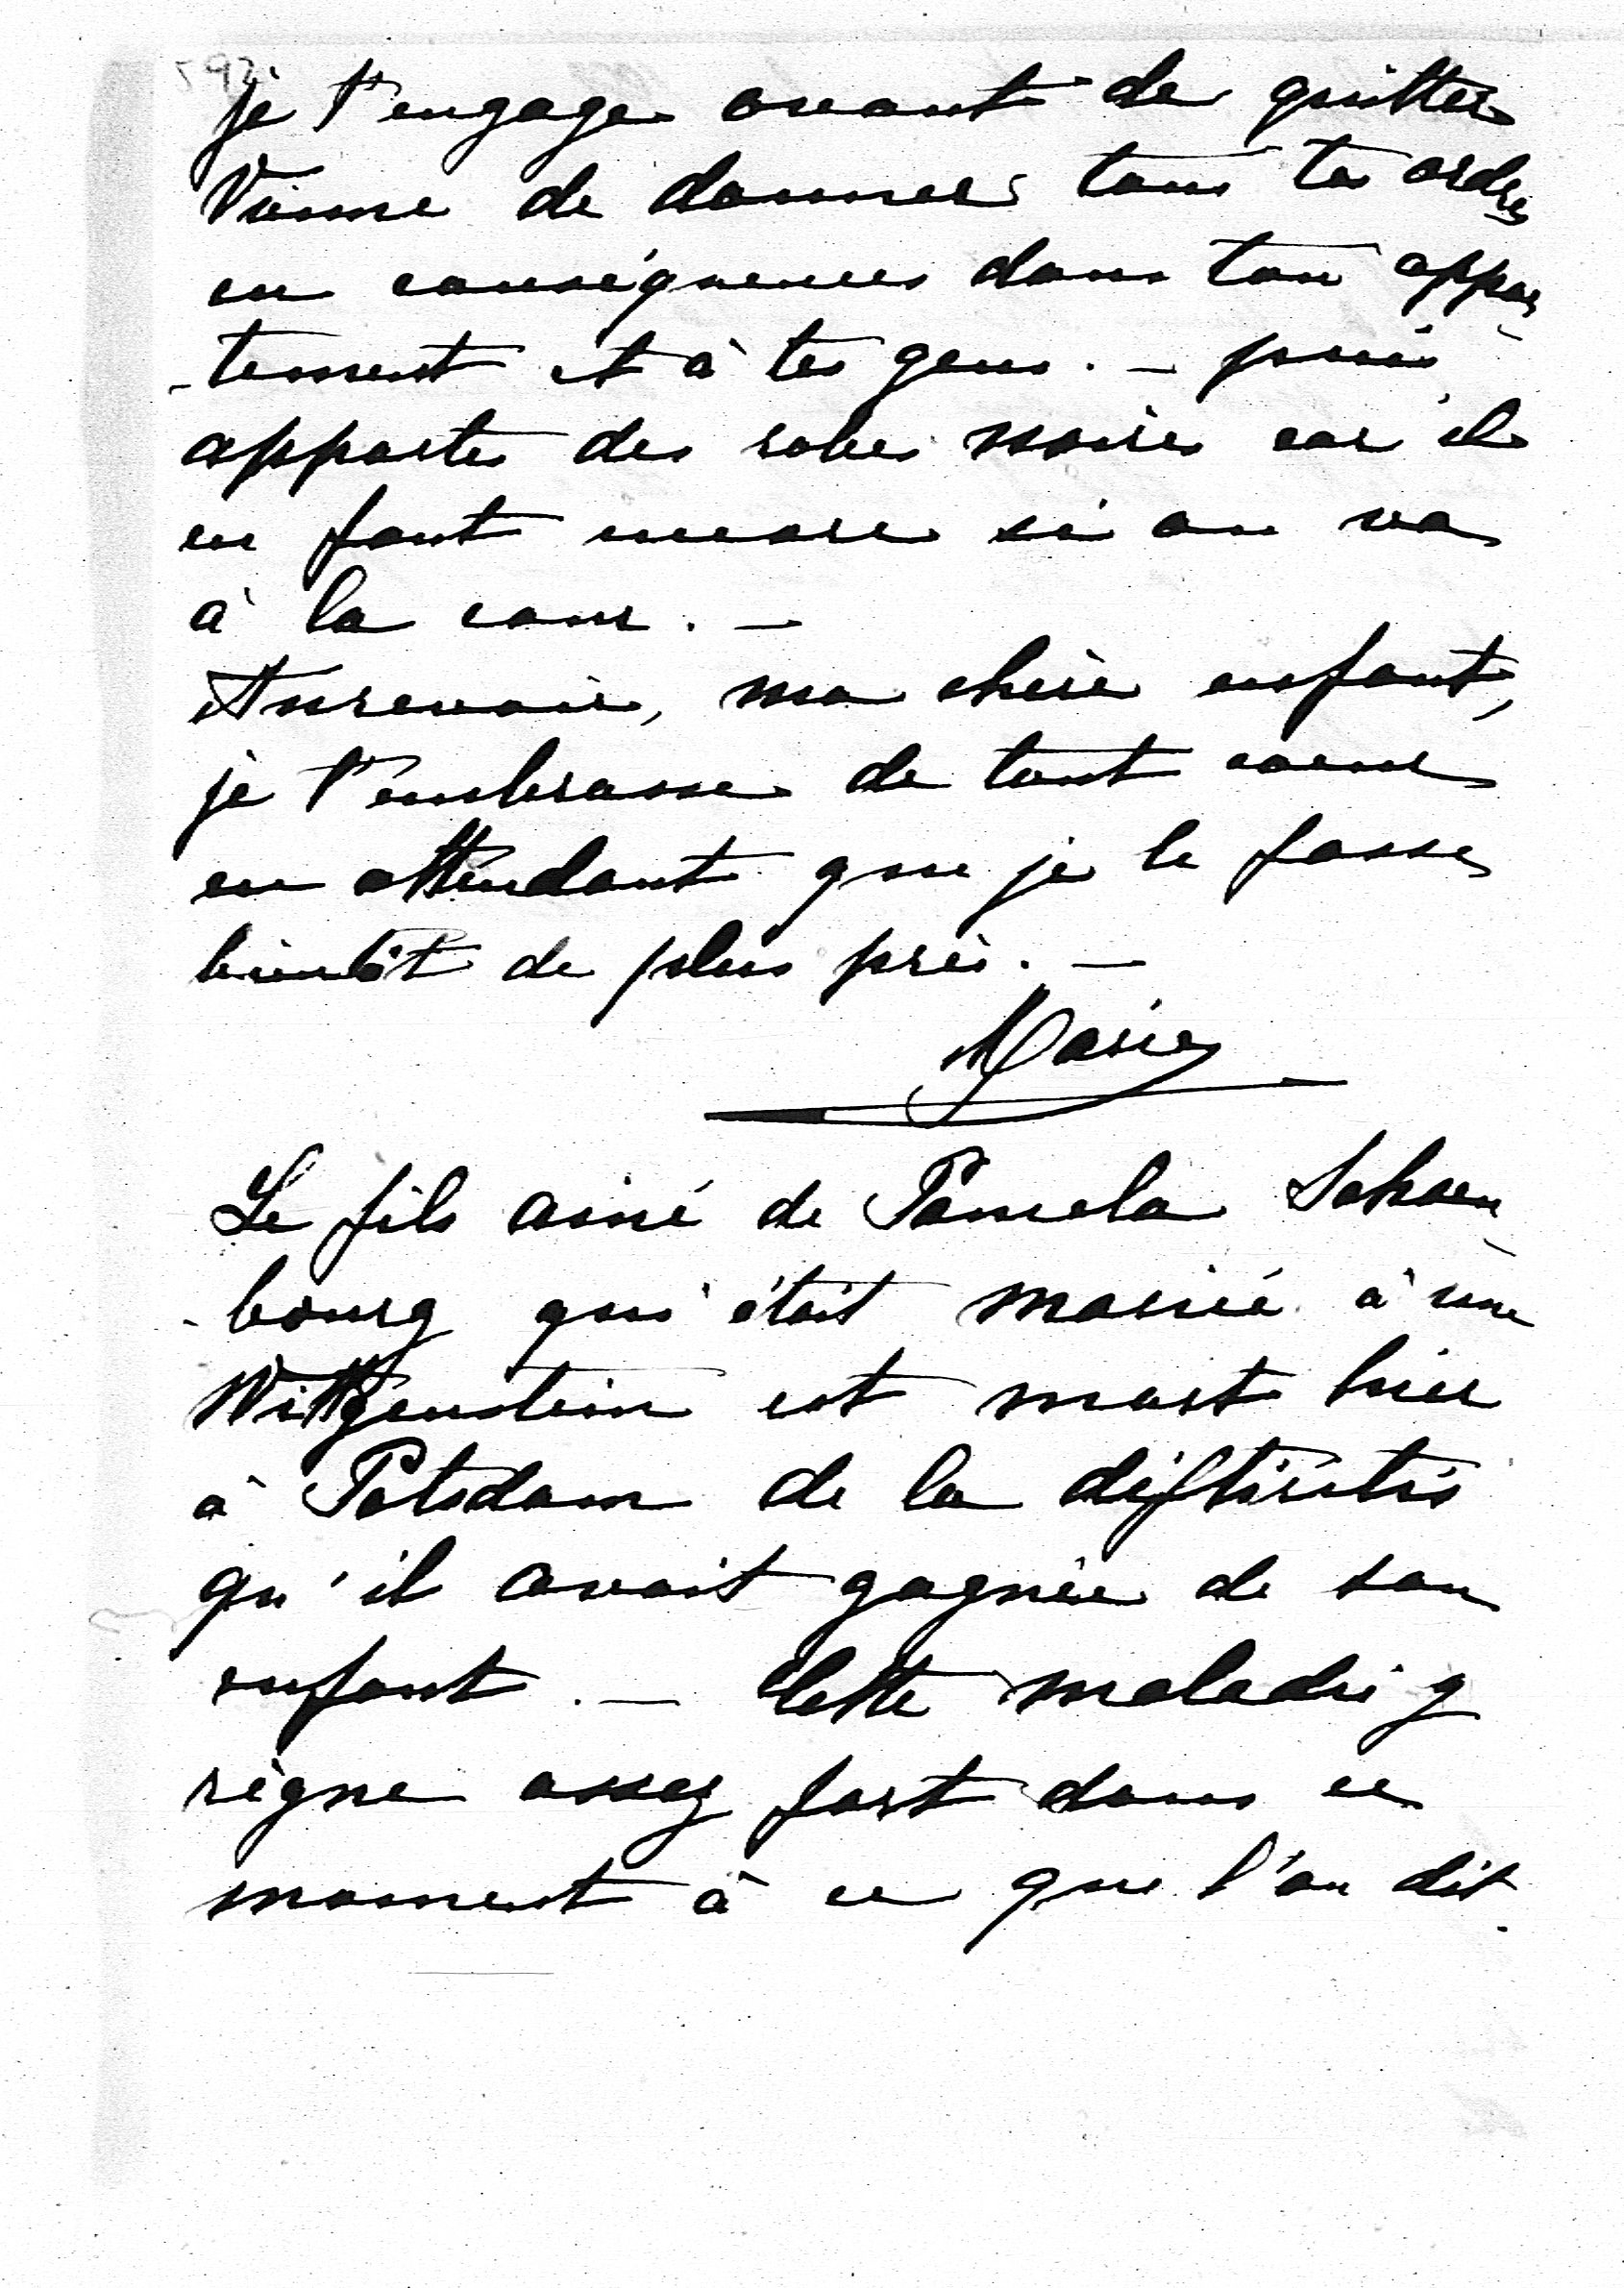 je t'engage avant de quitter
Vienne de donner tous tes ordres
en conséquences dans ton appar
-tement et à tes gens. — puis
apporte des robes noires car il
en faut encore si on va
à la cour. —
Aurevoir, ma chère enfant,
je t'embrasse de tout coeur
en attendant que je le fasse
bientôt de plus près. —
Marie
Le fils ainé de Pamela Schoen-
-bourg qui était marié à une
Wittgenstein est mort hier
à Potsdam de la diftiritis
qu'il avait gagnée de son
enfant. — Cette maladie y
règne assez fort dans ce
moment à ce que l'on dit.